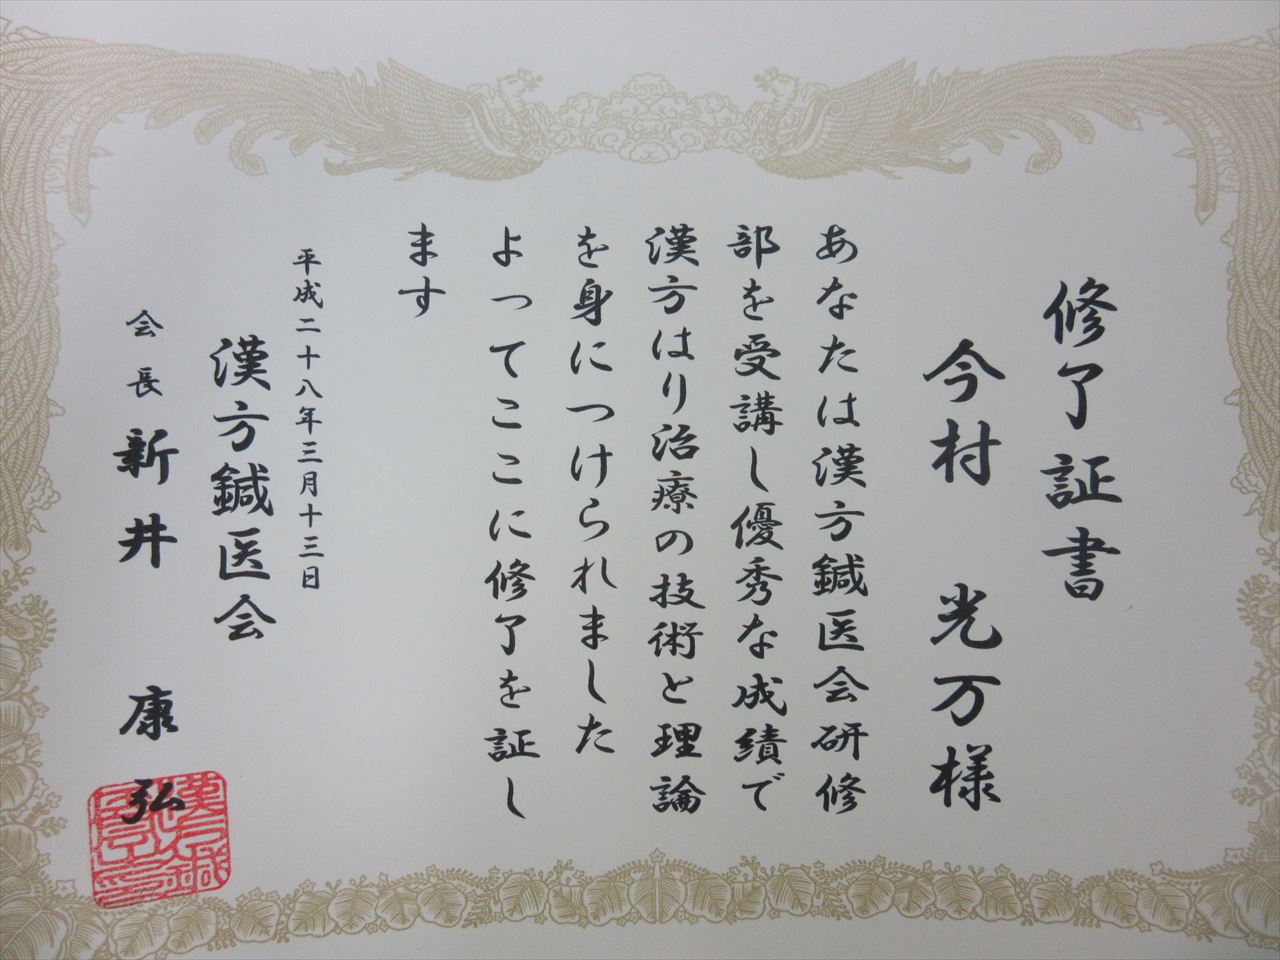 修了証書
今村 光万様
あなたは漢方鍼医会研修
部を受講し優秀な成績で
漢方はり治療の技術と理論
を身につけられました
よってここに修了を証し
ます
平成二十八年三月十三日
漢方鍼医会
会長 新井 康弘